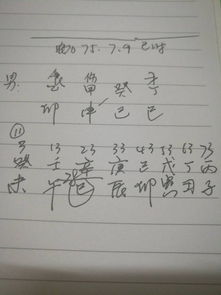 75.7.9 巳时
男: 癸 丁
卯 申 巳 巳
3 13 23 33 43 53 63 73
癸 壬 辛 庚 己 戊 丁 丙
未 午 巳 辰 卯 寅 丑 子